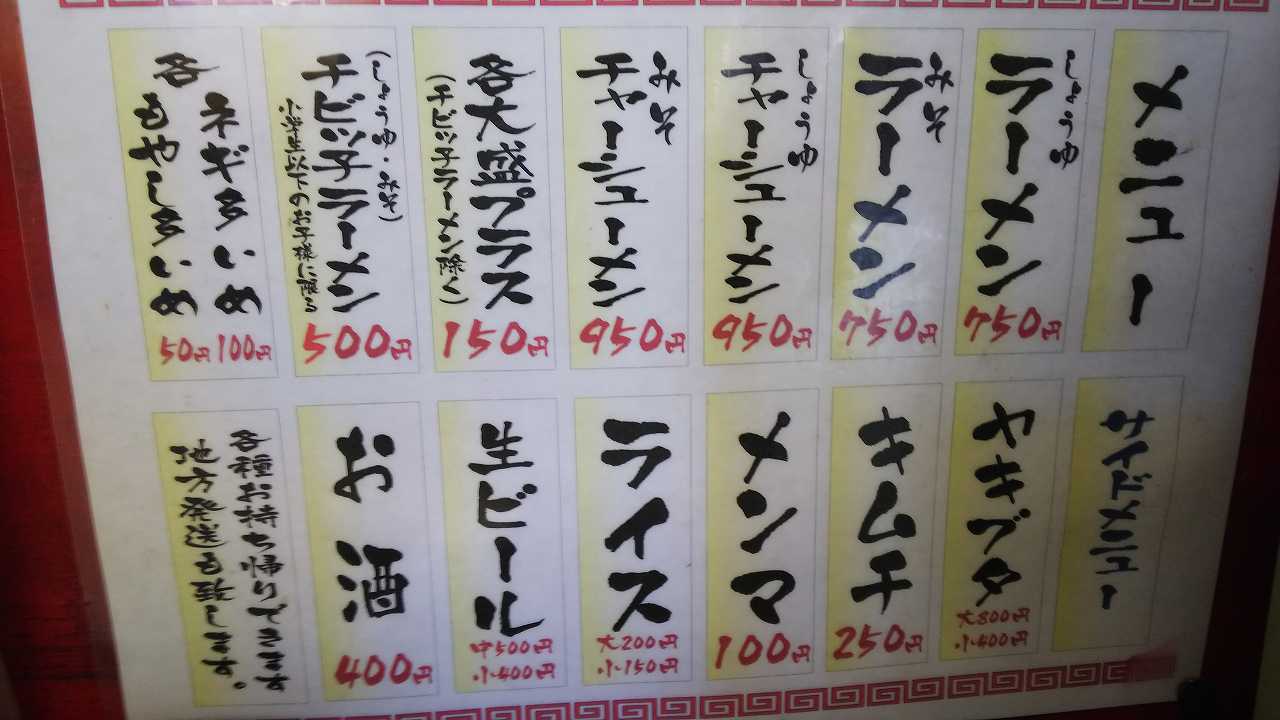 メニュー
しょうゆ
ラーメン
750円
みそ
ラーメン
750円
しょうゆ
チャーシューメン
950円
みそ
チャーシューメン
950円
各大盛プラス
(チビッ子ラーメン除く)
150円
(しょうゆ・みそ)
チビッ子ラーメン
小学生以下のお子様に限る
500円
各
ネギ多いめ
100円
もやし多いめ
50円
サイドメニュー
ヤキブタ
大800円
小400円
キムチ
250円
メンマ
100円
ライス
大200円
小150円
生ビール
中500円
小400円
お酒
400円
各種お持ち帰りできます
地方発送も致します。